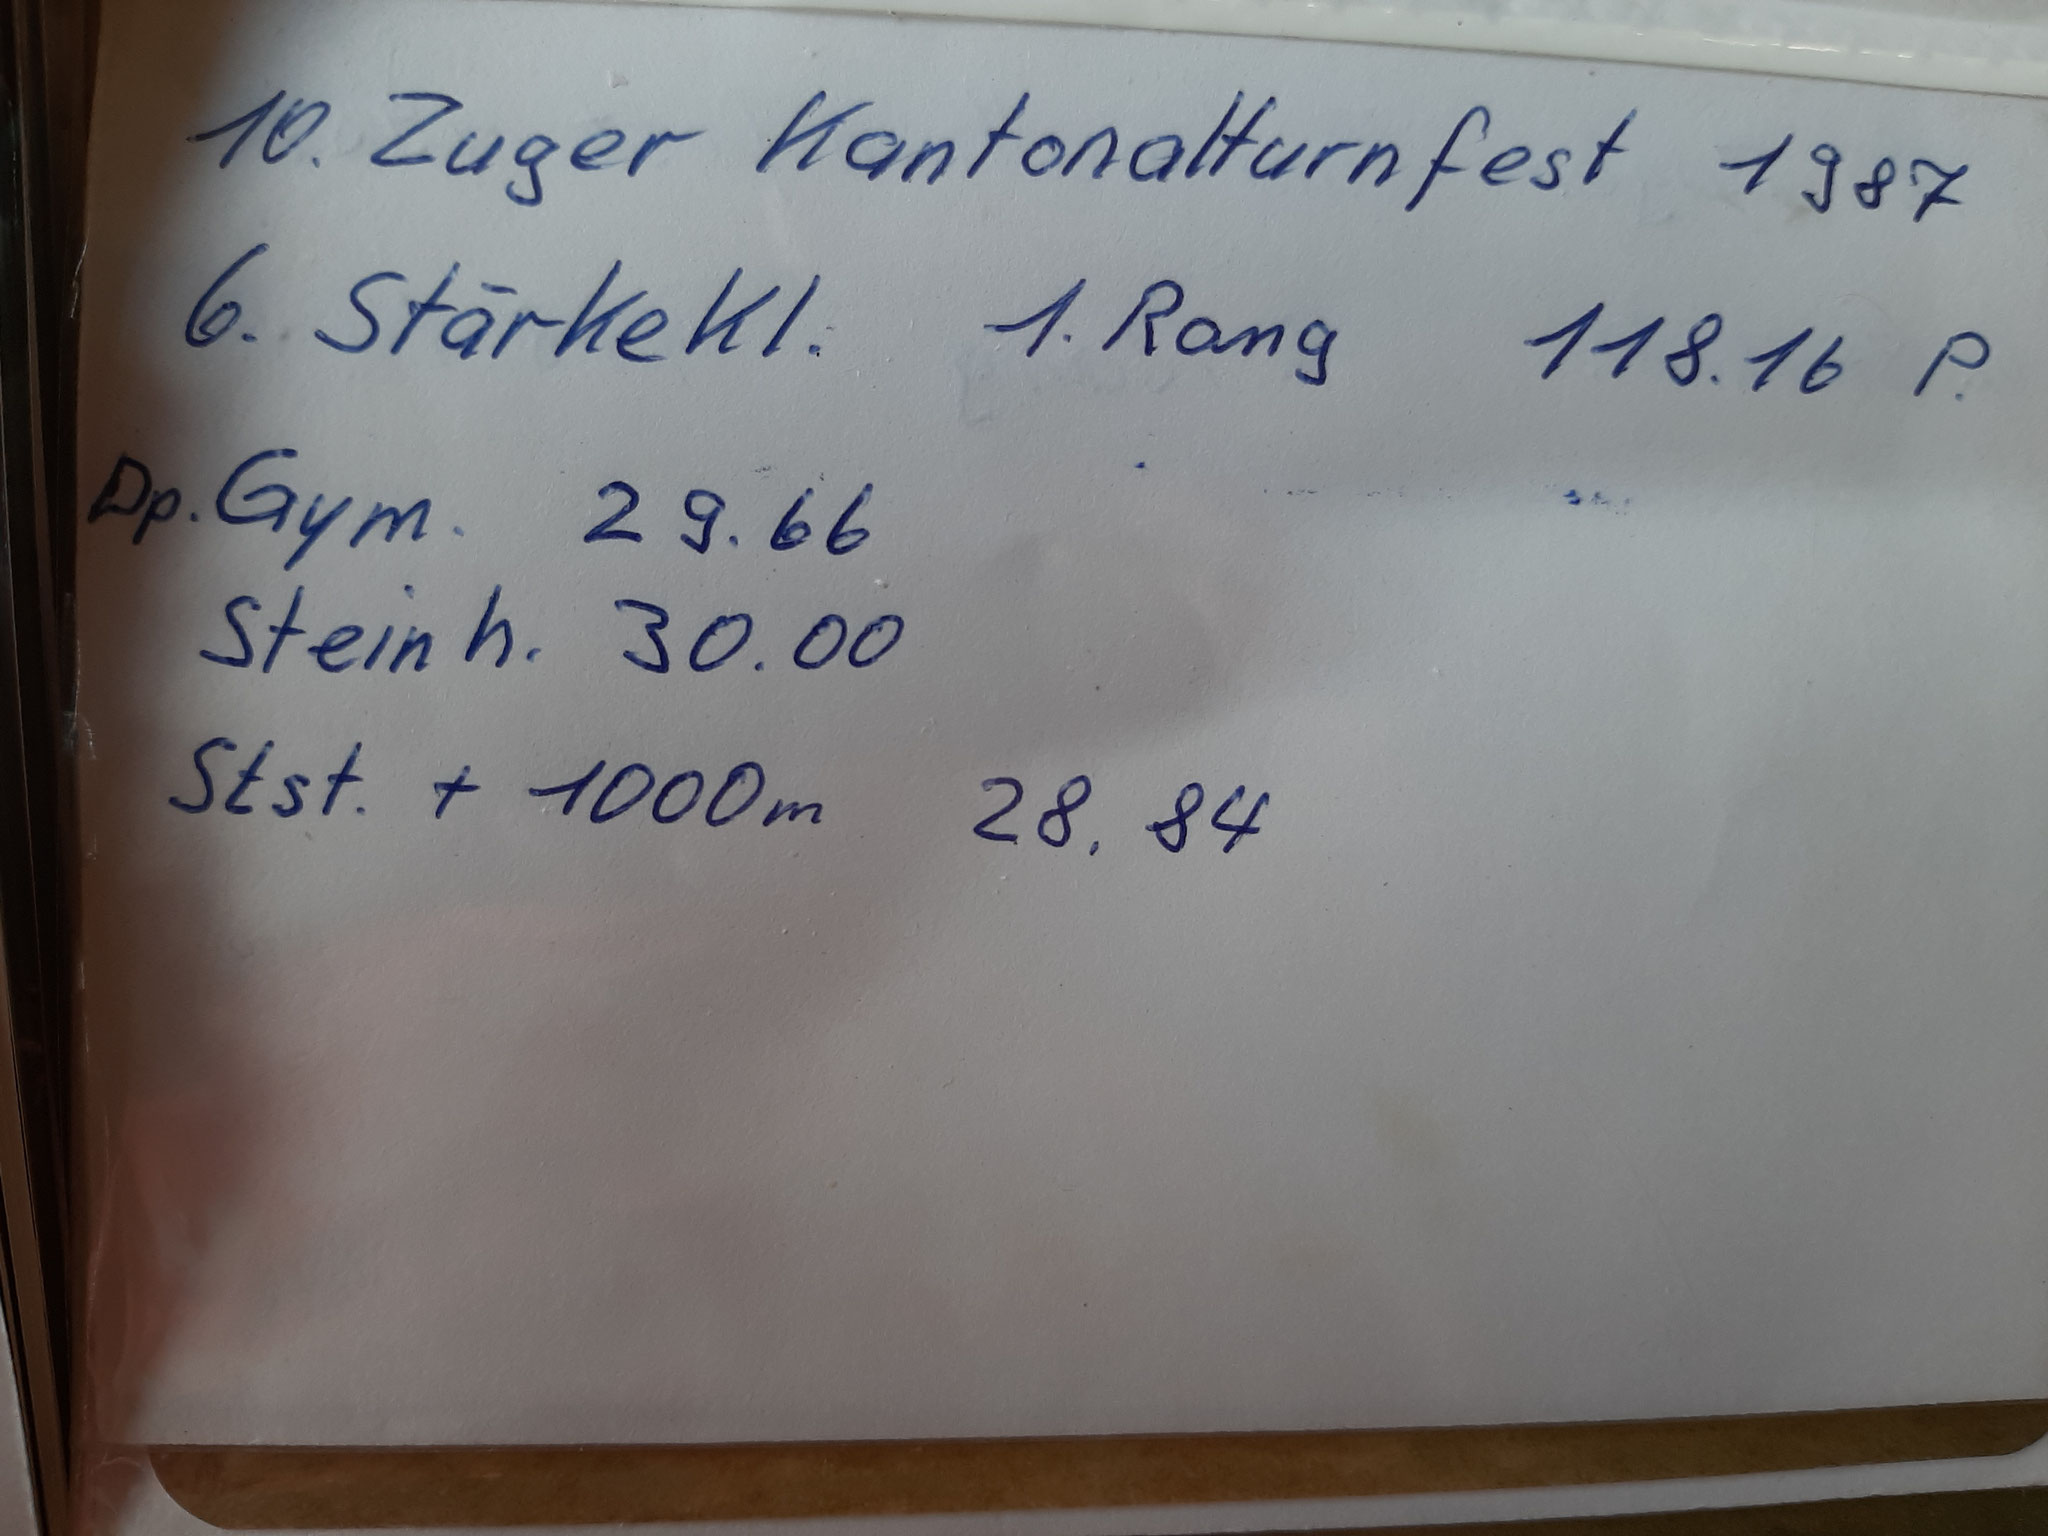 10. Zuger Kantonalturnfest 1987
6. Stärkekl. 1. Rang 118.16 P.
Dp. Gym. 29.66
Steinh. 30.00
Stst. + 1000m 28.84